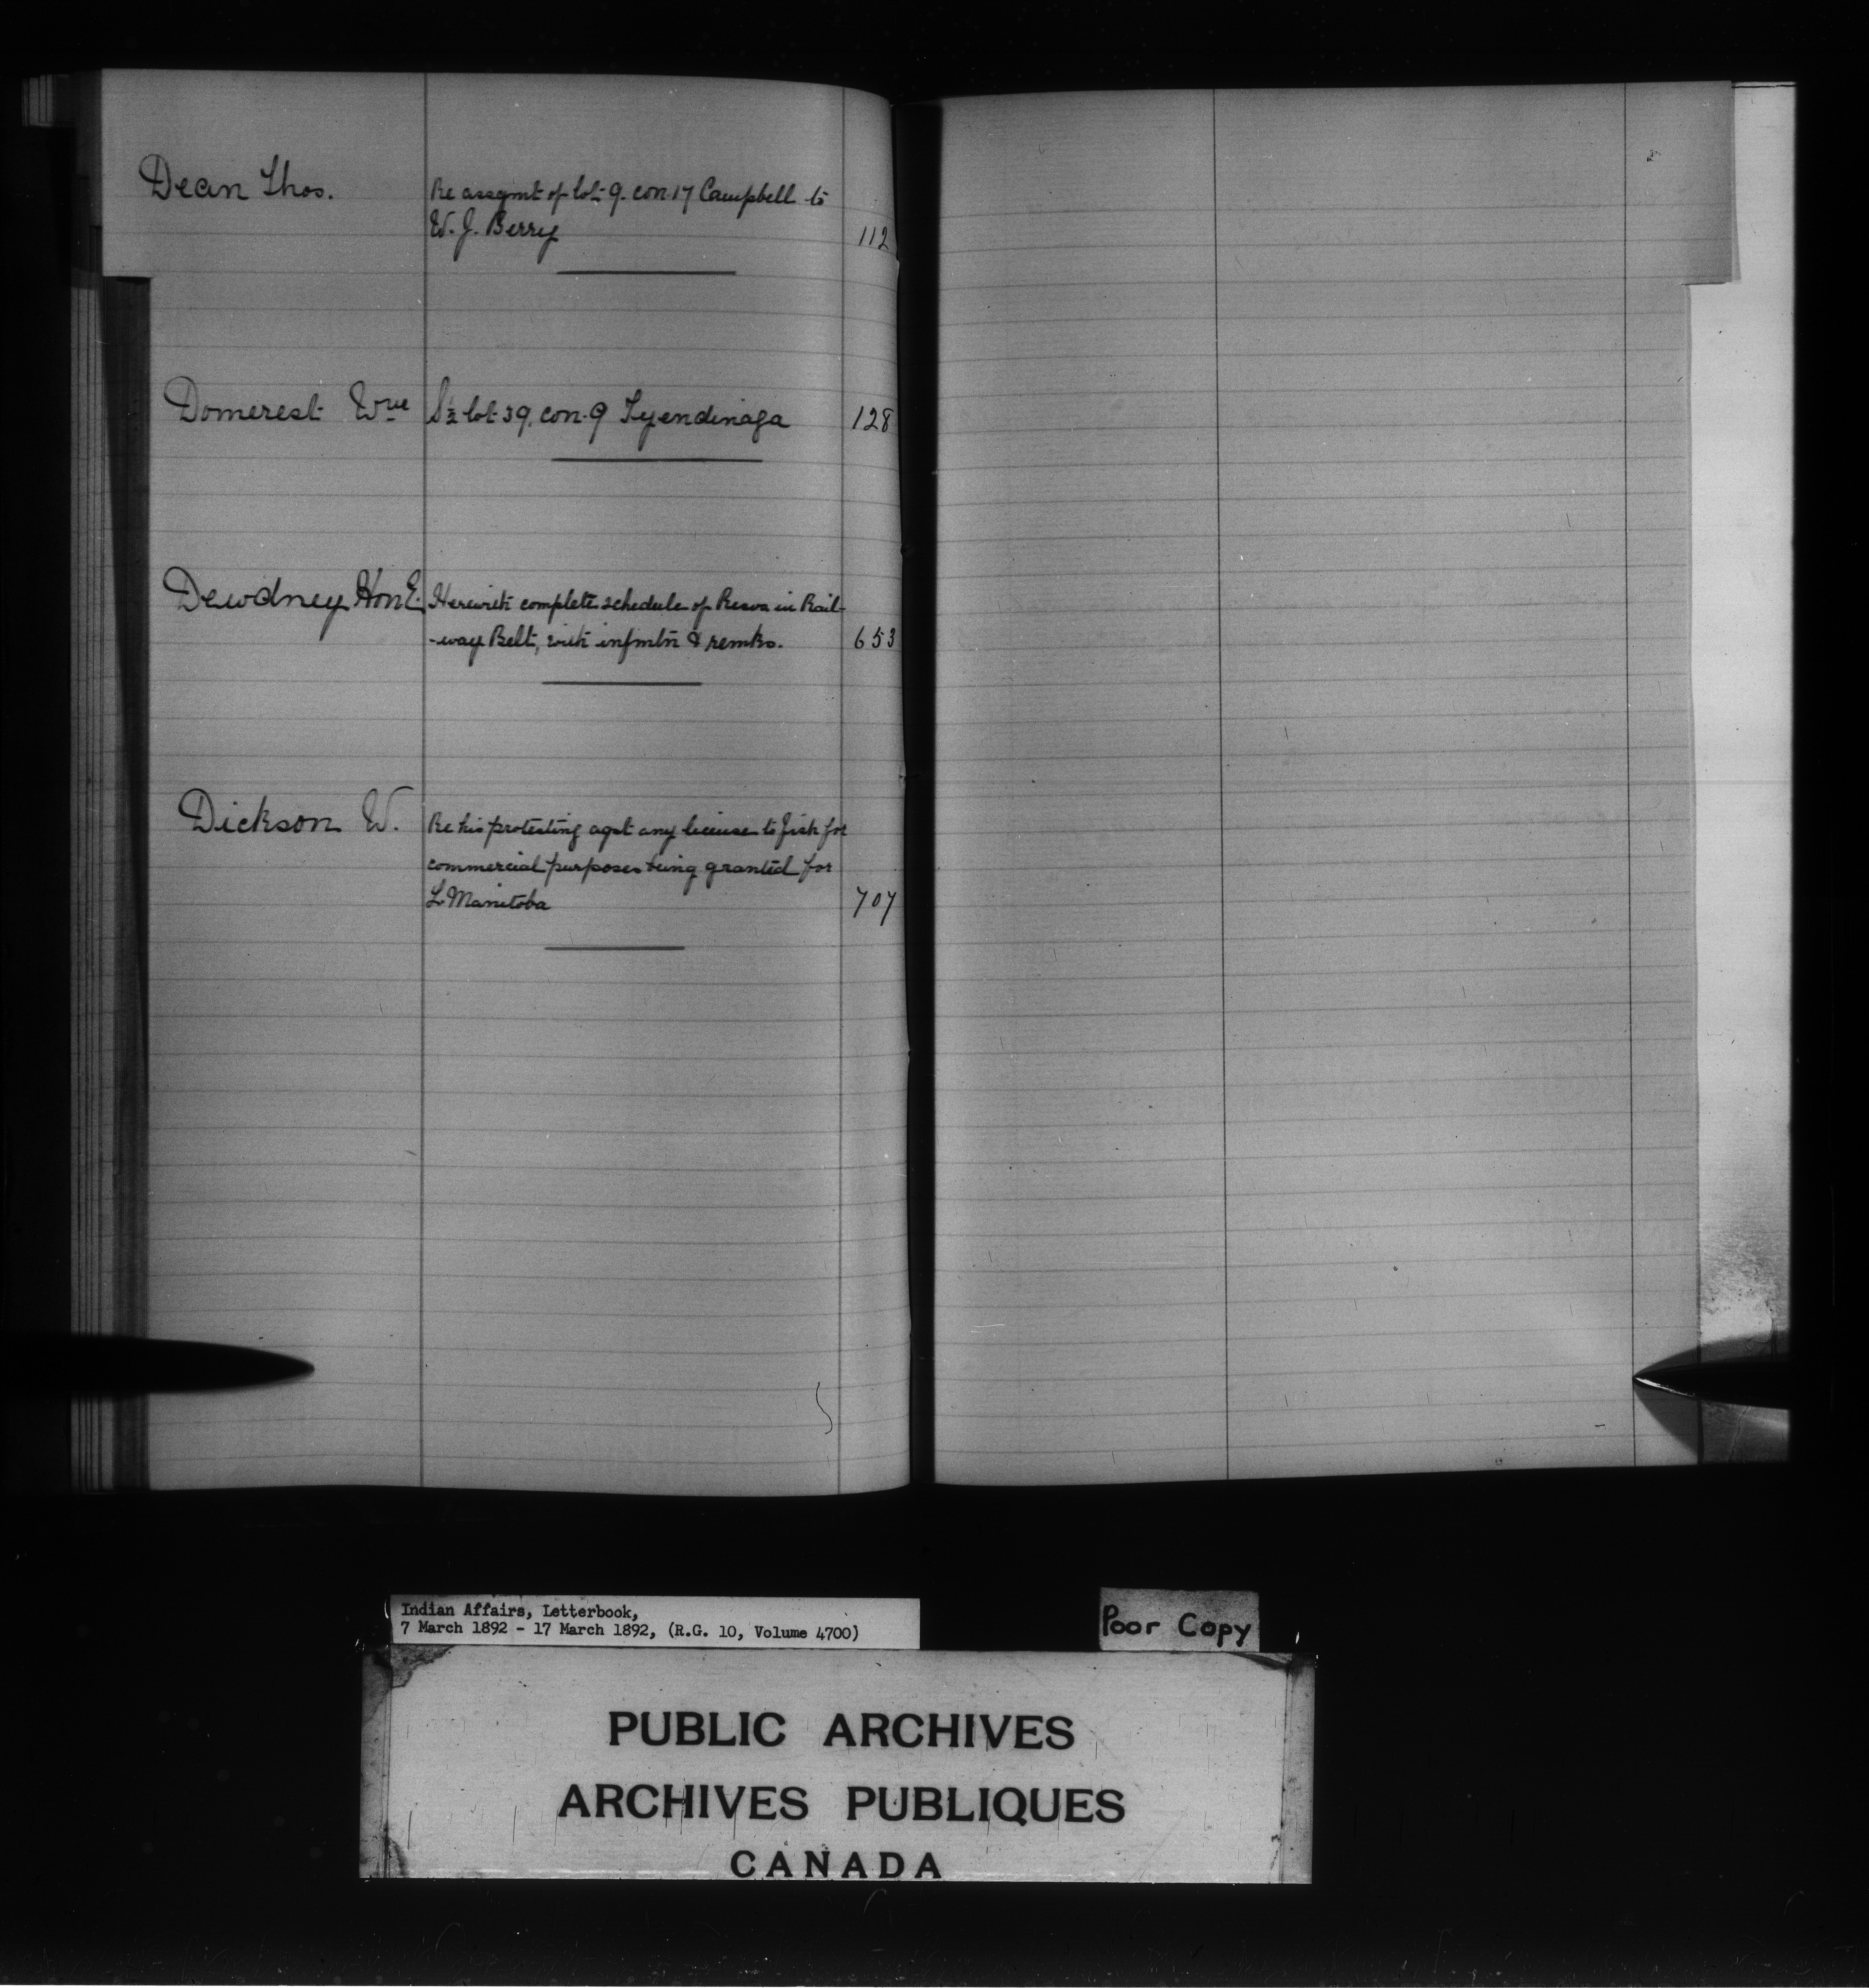 Dean Thos.
Re assgmt of lot 9. con. 17 Campbell to
W. J. Berry 112
Domerest Wm S½ lot 39. con. 9 Tyendinaga 128
Dewdney Hon E. Herewith complete schedule of Resvs in Rail-
-way Belt, with infmtn & remks. 653
Dickson W. Re his protesting agst any license to fish for
commercial purposes being granted for
L. Manitoba 707
Indian Affairs, Letterbook,
7 March 1892 - 17 March 1892, (R.G. 10, Volume 4700)
Poor Copy
PUBLIC ARCHIVES
ARCHIVES PUBLIQUES
CANADA